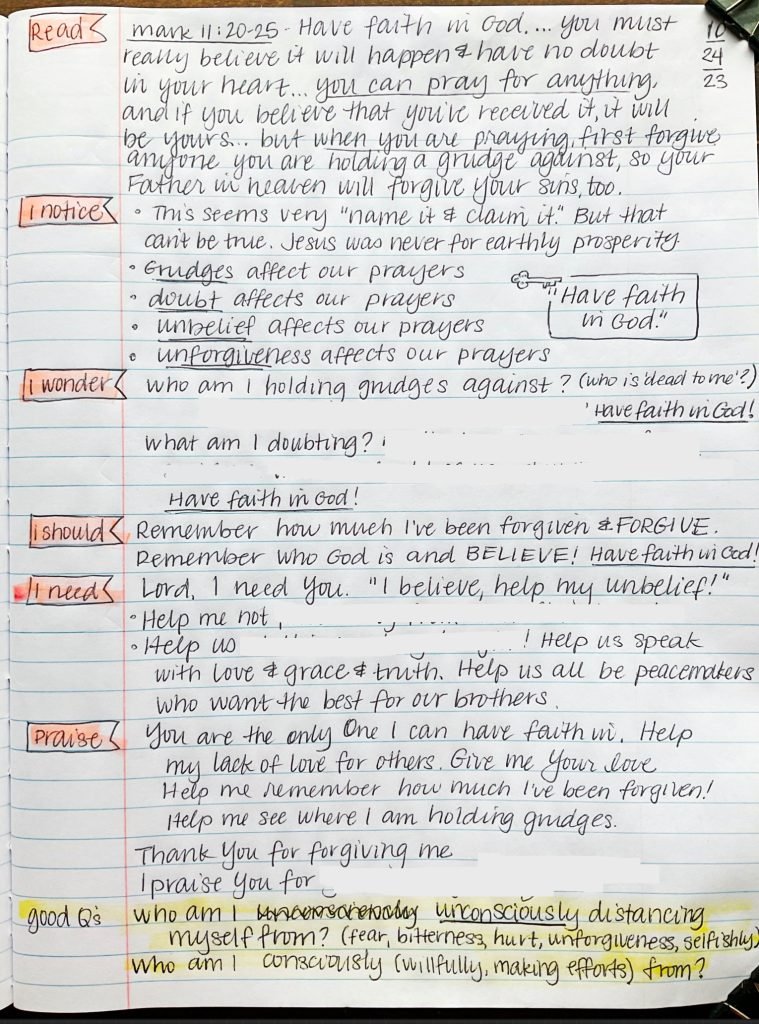 Read mark 11:20-25 - Have faith in God.... you must 10
really believe it will happen & have no doubt 24
in your heart... you can pray for anything, 23
and if you believe that you've received it, it will
be yours... but when you are praying, first forgive
anyone you are holding a grudge against, so your
Father in heaven will forgive your sins, too.
I notice • This seems very "name it & claim it." But that
can't be true. Jesus was never for earthly prosperity.
• Grudges affect our prayers
• doubt affects our prayers "Have faith
• unbelief affects our prayers in God."
• unforgiveness affects our prayers
I wonder who am I holding grudges against? (who is 'dead to me'?)
Have faith in God!
what am I doubting?
Have faith in God!
I should Remember how much I've been forgiven & FORGIVE.
Remember who God is and BELIEVE! Have faith in God!
I need Lord, I need You. "I believe, help my unbelief!"
• Help me not
• Help us ! Help us speak
with love & grace & truth. Help us all be peacemakers
who want the best for our brothers.
Praise You are the only One I can have faith in. Help
my lack of love for others. Give me Your love
Help me remember how much I've been forgiven!
Help me see where I am holding grudges.
Thank You for forgiving me
I praise You for
good Q's who am I unconsciously distancing
myself from? (fear, bitterness, hurt, unforgiveness, selfishly)
who am I consciously (willfully, making efforts) from?